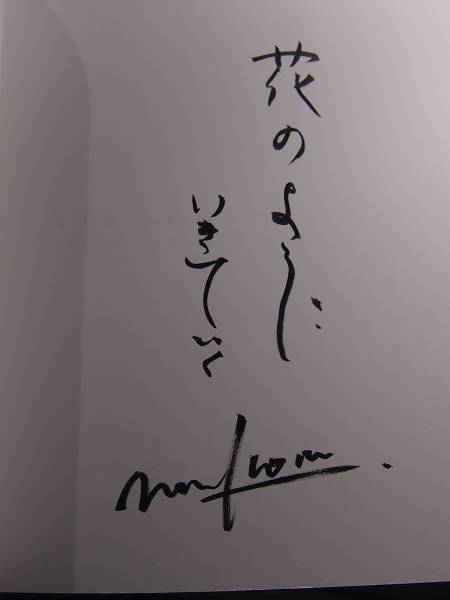 花のように
いきていく